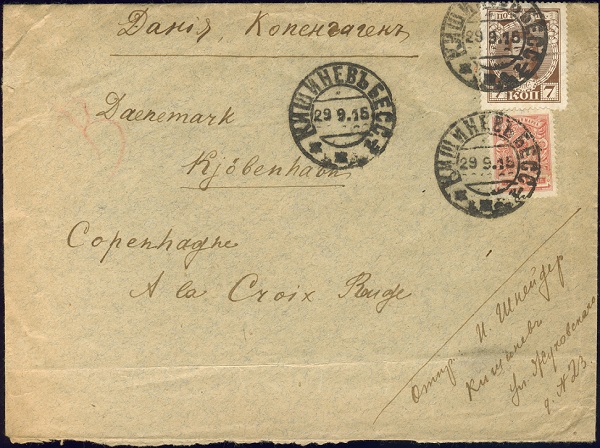 Данія, Копенгагенъ
КИШИНЕВЪ БЕСС.
29 9.15
7 КОП 7
КИШИНЕВЪ БЕСС.
29 9.15
КИШИНЕВЪ БЕСС.
29 9.15
Daenemark
Kjöbenhavn
Copenhague
A la Croix Rouge
Отпр. И. Шнейдер
Кишинев
ул. Жуковскаго
д. N 23.